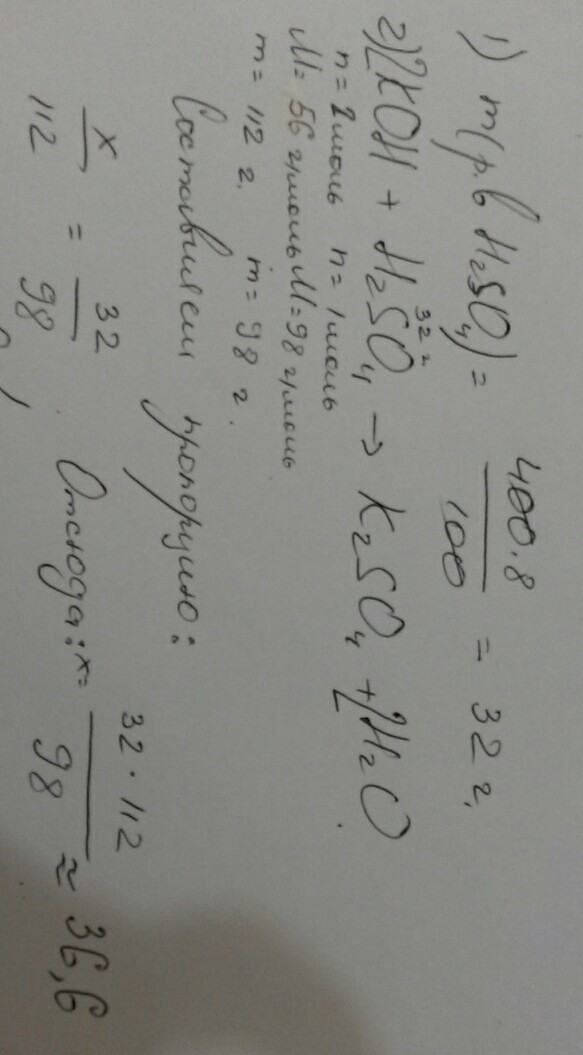 1) m(р.в H₂SO₄) = 400·8 / 100 = 32 г.
32 г
2) 2KOH + H₂SO₄ → K₂SO₄ + 2H₂O
n = 2 моль n = 1 моль
M = 56 г/моль M = 98 г/моль
m = 112 г. m = 98 г.
Составляем пропорцию:
x / 112 = 32 / 98 Отсюда: x = 32·112 / 98 ≈ 36,6